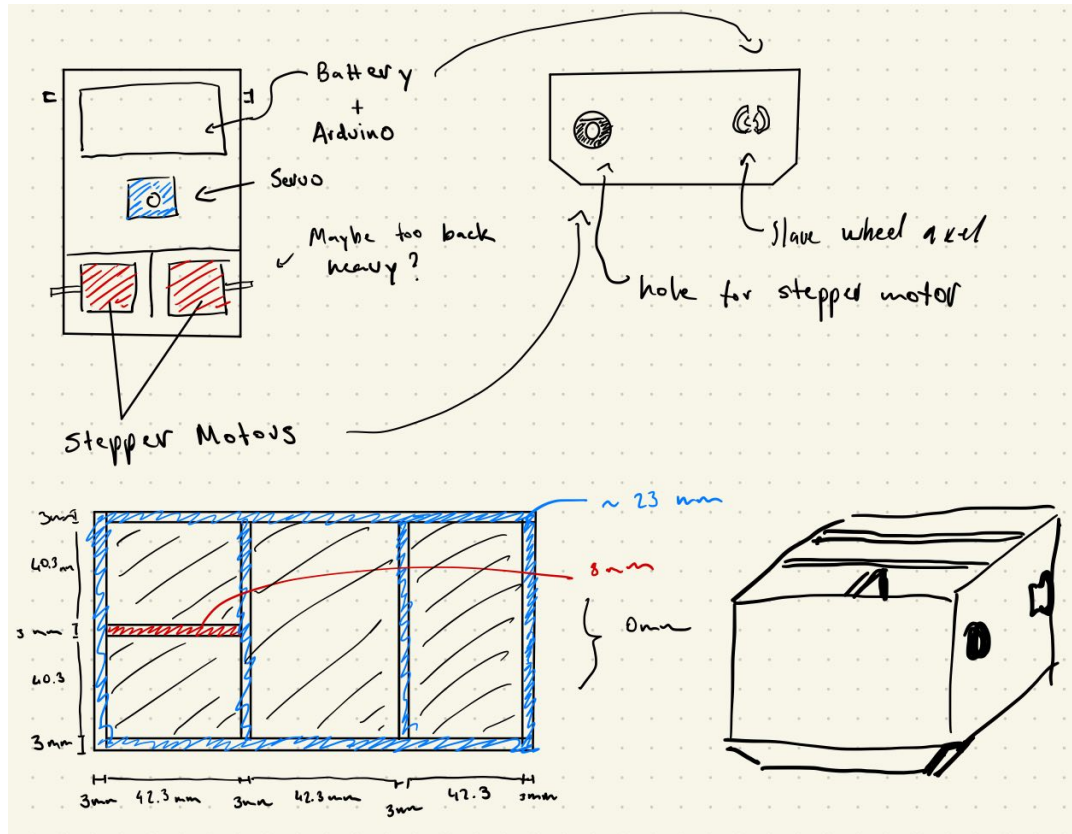 Battery
+
Arduino
Servo
Maybe too back
heavy?
Stepper Motors
Slave wheel axel
hole for stepper motor
~ 23 mm
3mm
40.3 m
3 mm
40.3
3mm
8mm
0mm
3mm
42.3 mm
3mm
42.3 mm
3mm
42.3
3mm